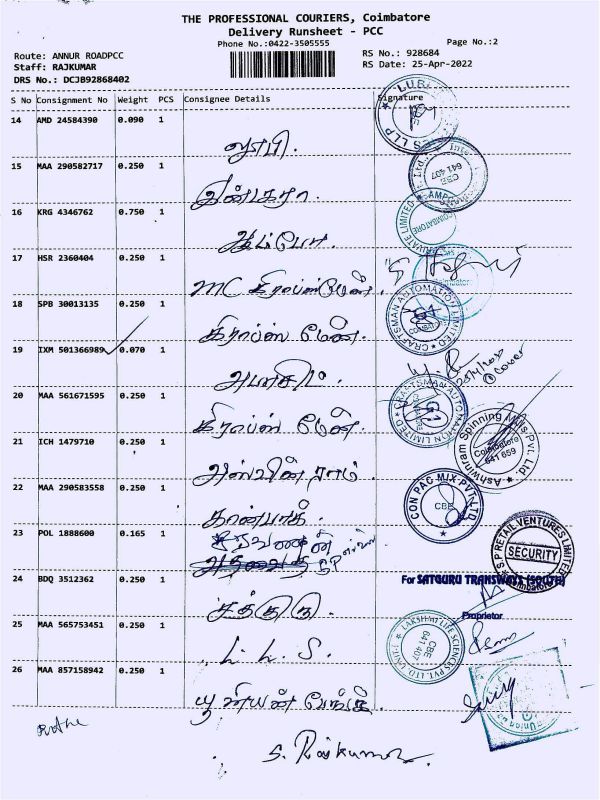 THE PROFESSIONAL COURIERS, Coimbatore
Delivery Runsheet - PCC
Phone No.:0422-3505555
Page No.:2
Route: ANNUR ROADPCC
RS No.: 928684
Staff: RAJKUMAR
RS Date: 25-Apr-2022
DRS No.: DCJB92868402
S No Consignment No Weight PCS Consignee Details Signature
14 AMD 24584390 0.090 1
லூபி.
15 MAA 290582717 0.250 1
16 KRG 4346762 0.750 1
ஆம்போ.
17 HSR 2360404 0.250 1
MC கிராப்ஸ்மேன்.
18 SPB 30013135 0.250 1
கிராப்ஸ் மேன்.
19 IXM 501366989 0.070 1
20 MAA 561671595 0.250 1
கிராப்ஸ் மேன்.
21 ICH 1479710 0.250 1
அஸ்வின் ராம்.
22 MAA 290583558 0.250 1
கான்பாக்.
23 POL 1888600 0.165 1
24 BDQ 3512362 0.250 1
சத்குரு
25 MAA 565753451 0.250 1
L. L. S.
26 MAA 857158942 0.250 1
யூனியன் வங்கி.
S. Rajkumar
CRAFTSMAN AUTOMATION LIMITED
CRAFTSMAN AUTOMATION LIMITED
Ashwinram Spinning Mills Pvt. Ltd
Coimbatore
641 659
CON PAC MIX PVT LTD
CBE
S.P RETAIL VENTURES LIMITED
SECURITY
Coimbatore
For SATGURU TRANSWAYS (SOUTH)
Proprietor
LAKSHAI LIFE SCIENCES PVT. LTD.
CBE
641 407